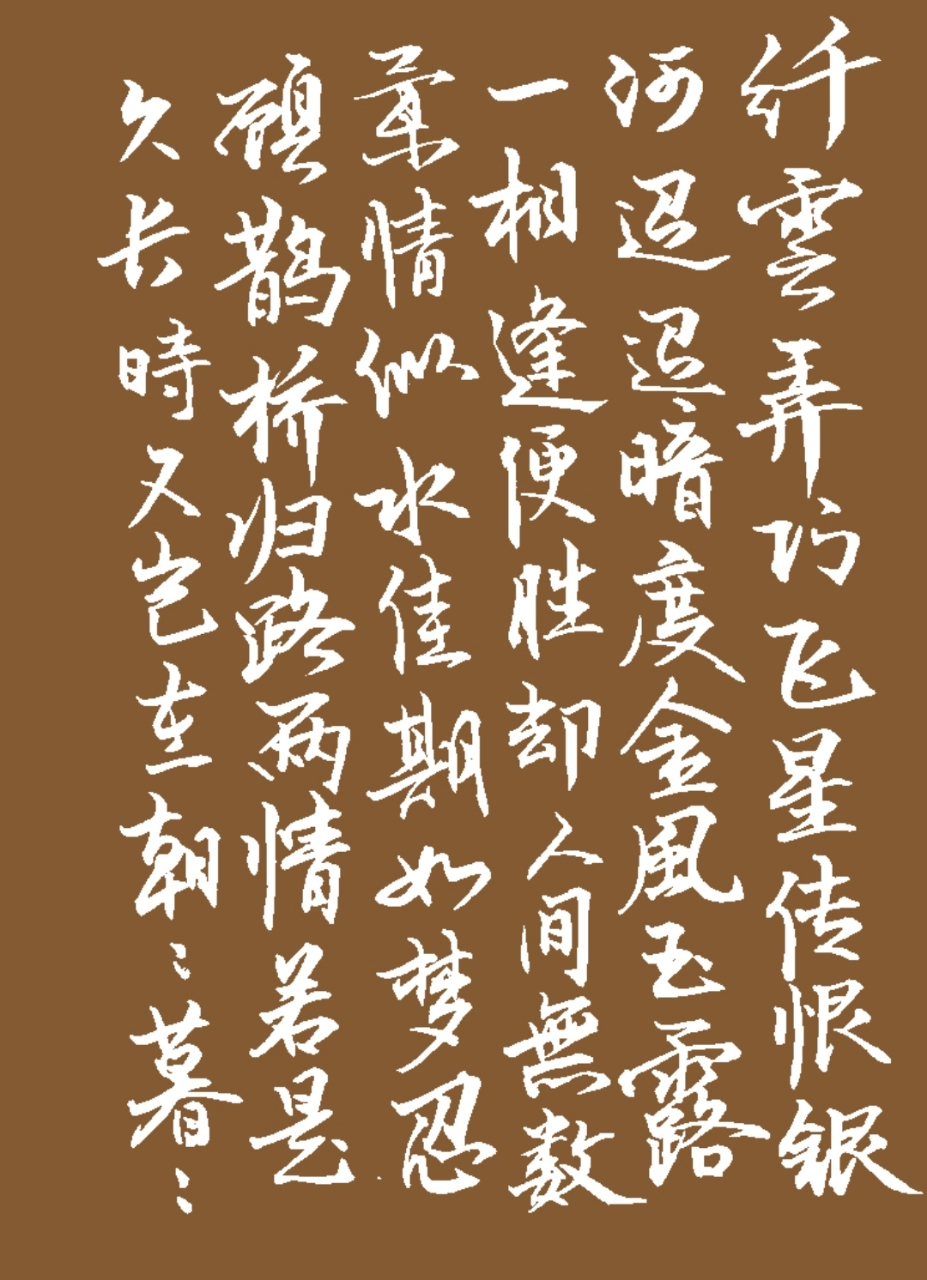 纤雲弄巧飞星传恨银
河迢迢暗度金風玉露
一相逢便胜却人间無数
柔情似水佳期如梦忍
顾鹊桥归路两情若是
久长時又岂在朝〻暮〻